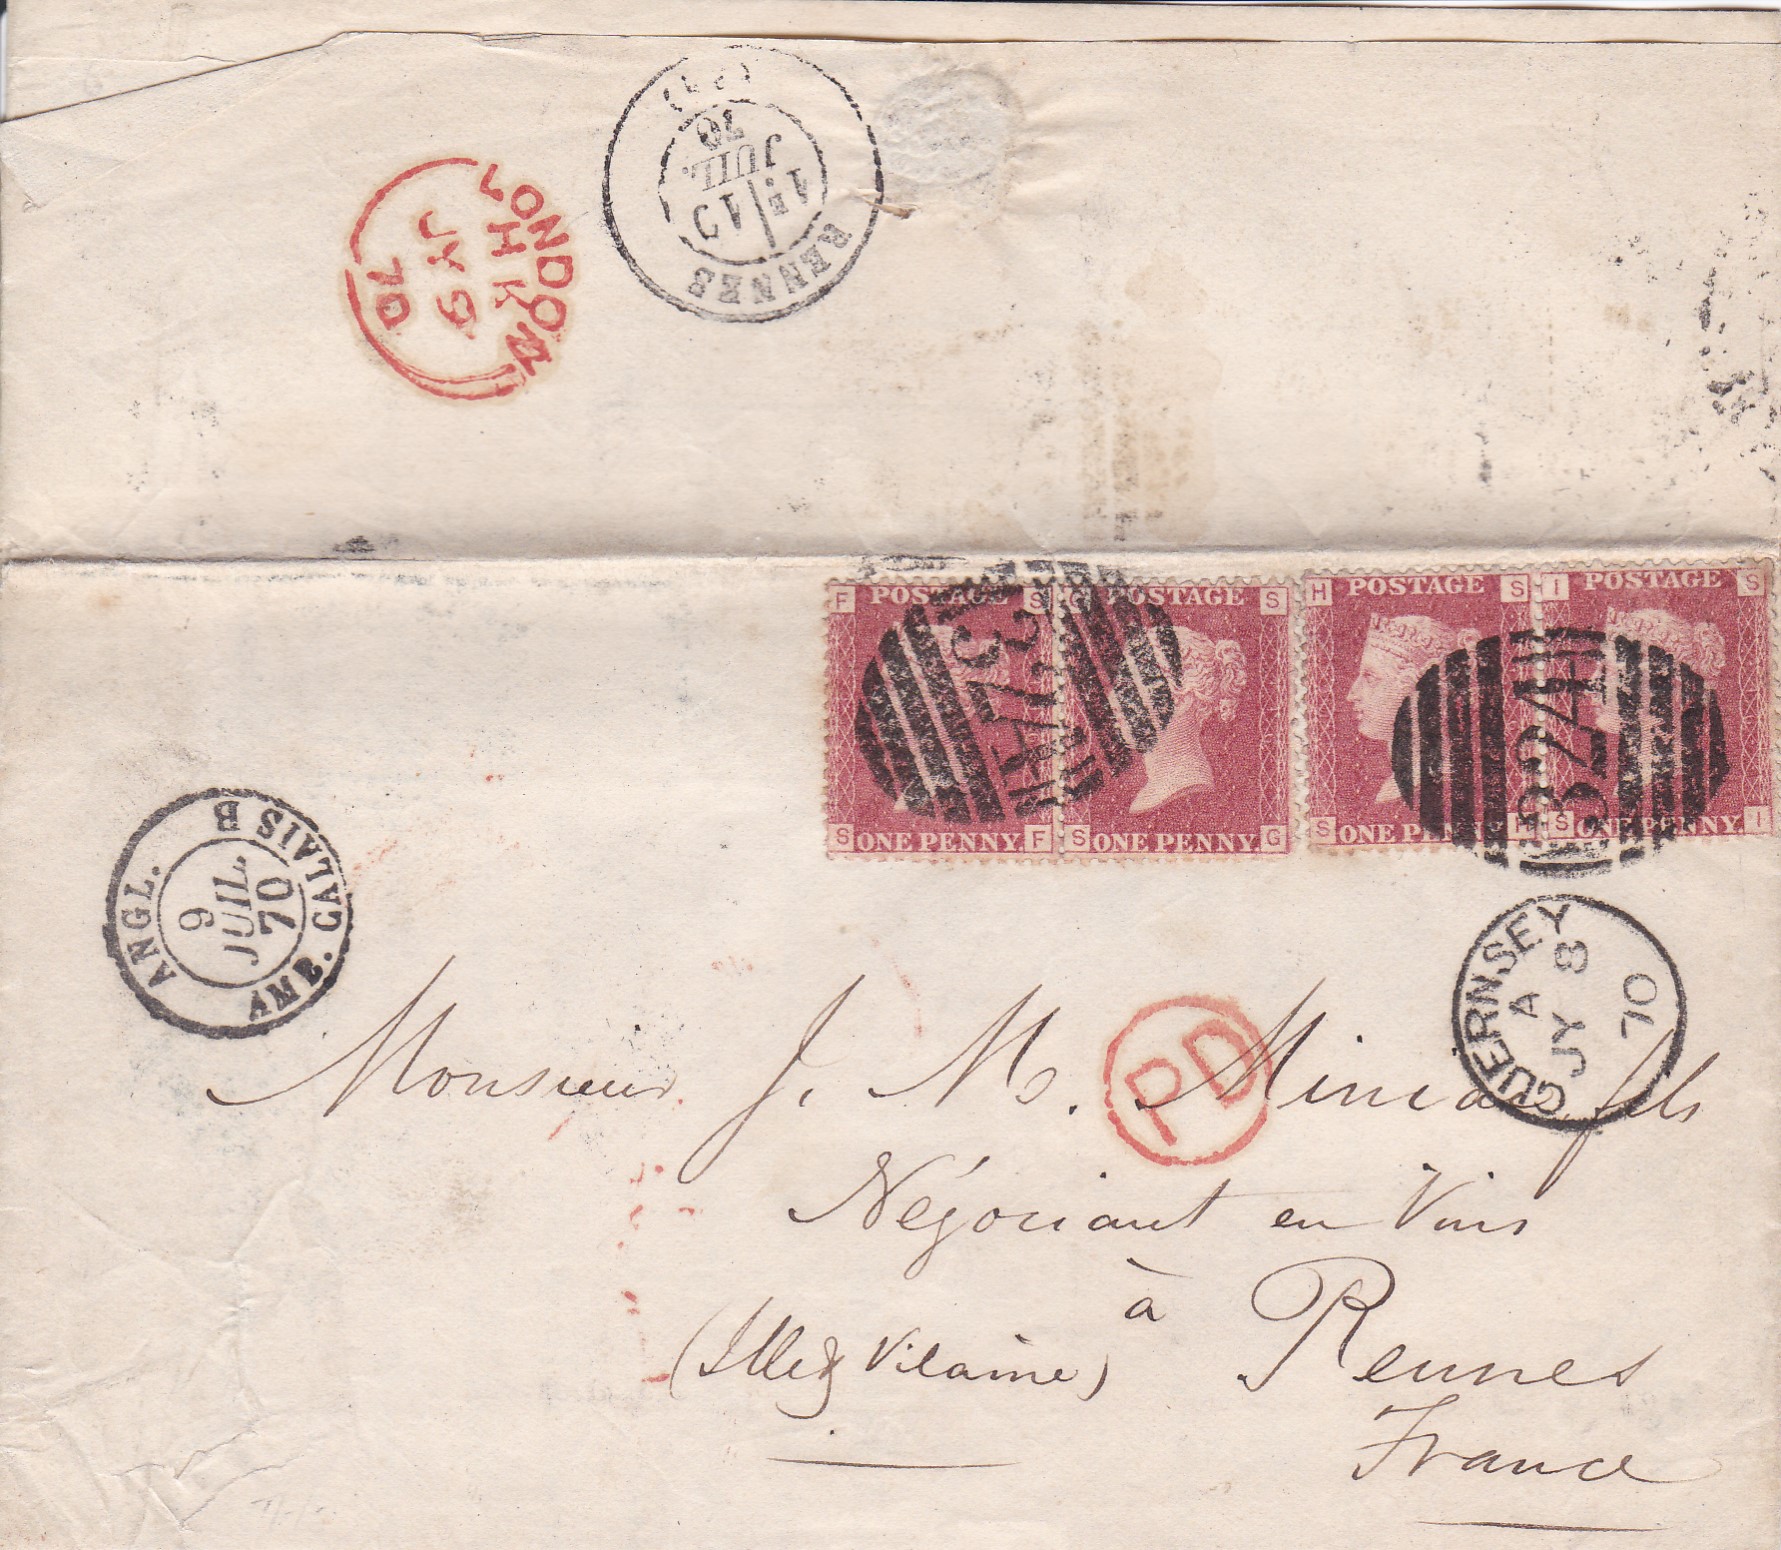 LONDON
H K
JY 9
70
RENNES
1E
10
JUIL.
70
(34)
F POSTAGE S
S ONE PENNY F
G POSTAGE S
S ONE PENNY G
H POSTAGE S
S ONE PENNY H
I POSTAGE S
S ONE PENNY I
324
324
ANGL.
AMB. CALAIS B
9
JUIL.
70
GUERNSEY
A
JY 8
70
PD
Monsieur J. M. fils
Négociant en Vins
à Rennes
(Ille & Vilaine)
France